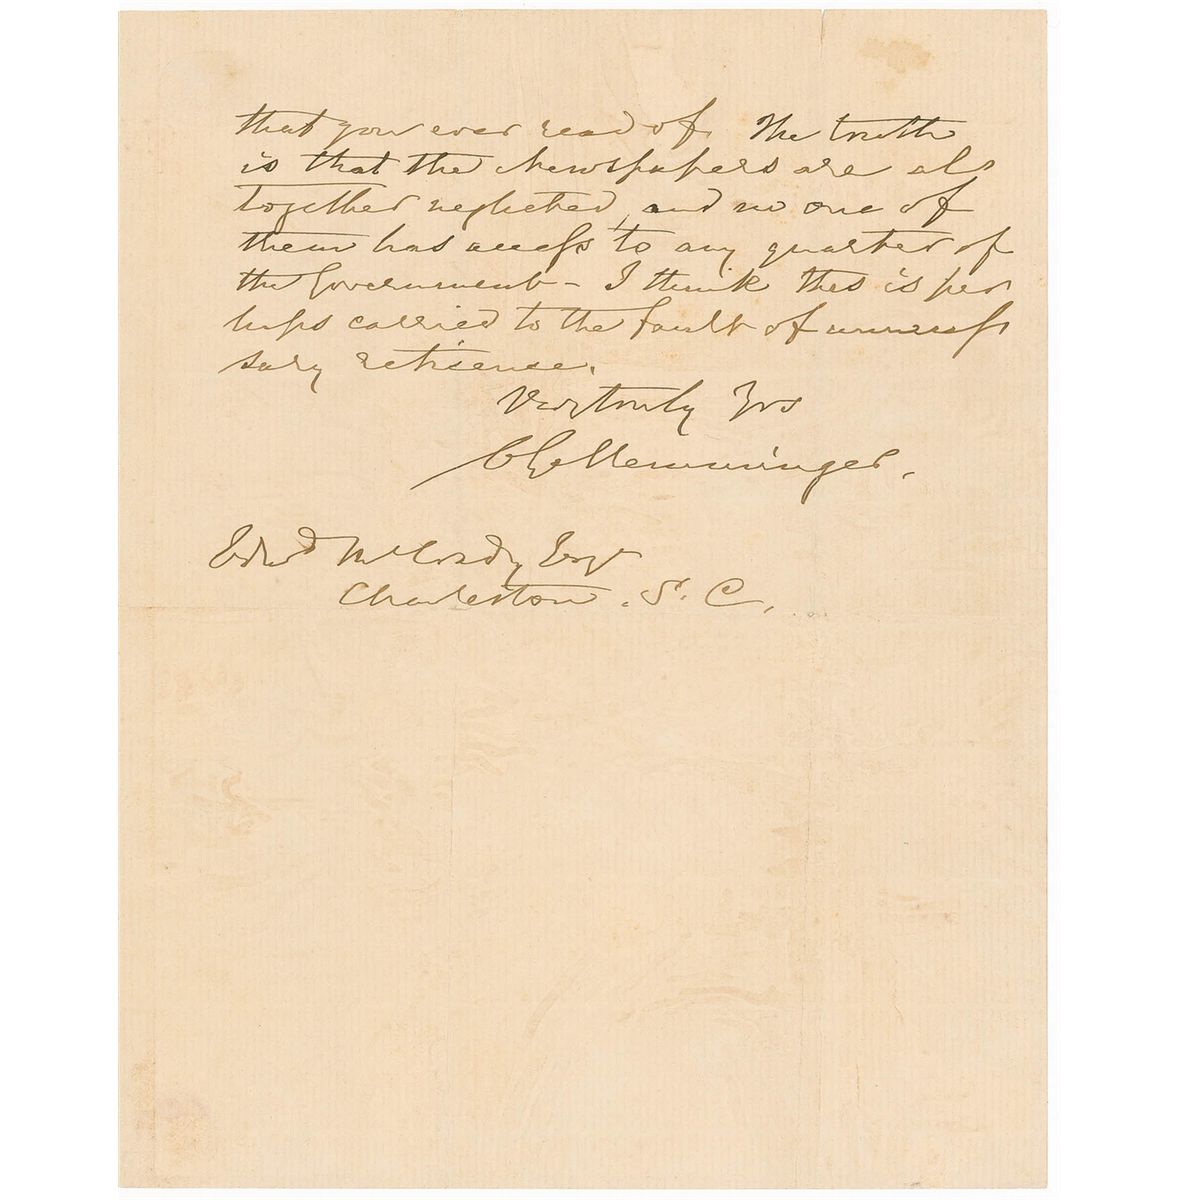 that you ever read of. The truth
is that the Newspapers are al
together neglected, and no one of
them has access to any quarter of
the Government – I think this is per
haps carried to the fault of unneces
sary reticence.
Very truly Yrs
C G Memminger.
Edwd McCrady Esqr
Charleston. S. C.